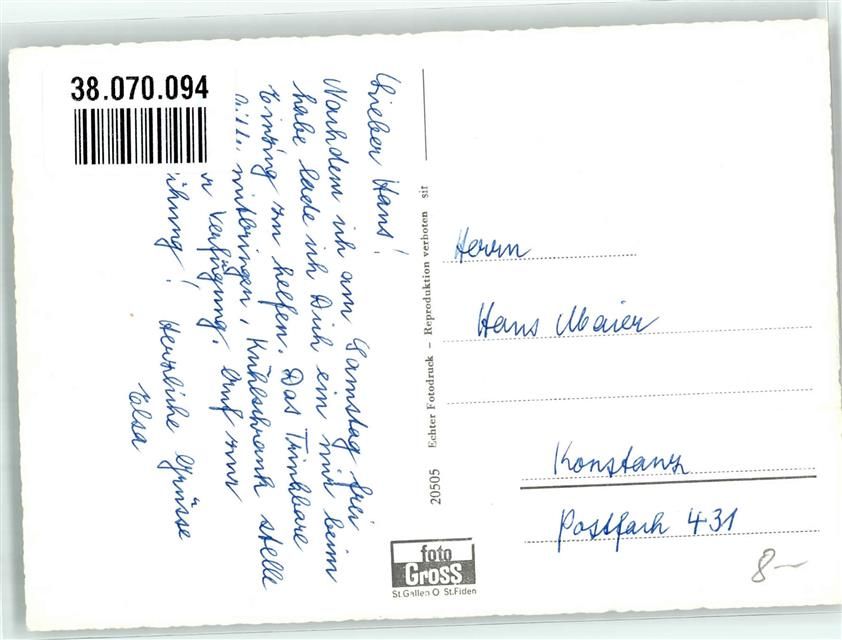 38.070.094
Lieber Hans!
Nachdem ich am Samstag frei
habe lade ich Dich ein mir beim
Einzug zu helfen. Das Trinkbare
bitte mitbringen, Kühlschrank stelle
Verfügung. Auf zur
Herzliche Grüsse
Elsa
Echter Fotodruck – Reproduktion verboten sif
20505
foto
Gross
St.Gallen O St.Fiden
Herrn
Hans Maier
Konstanz
Postfach 431
8–